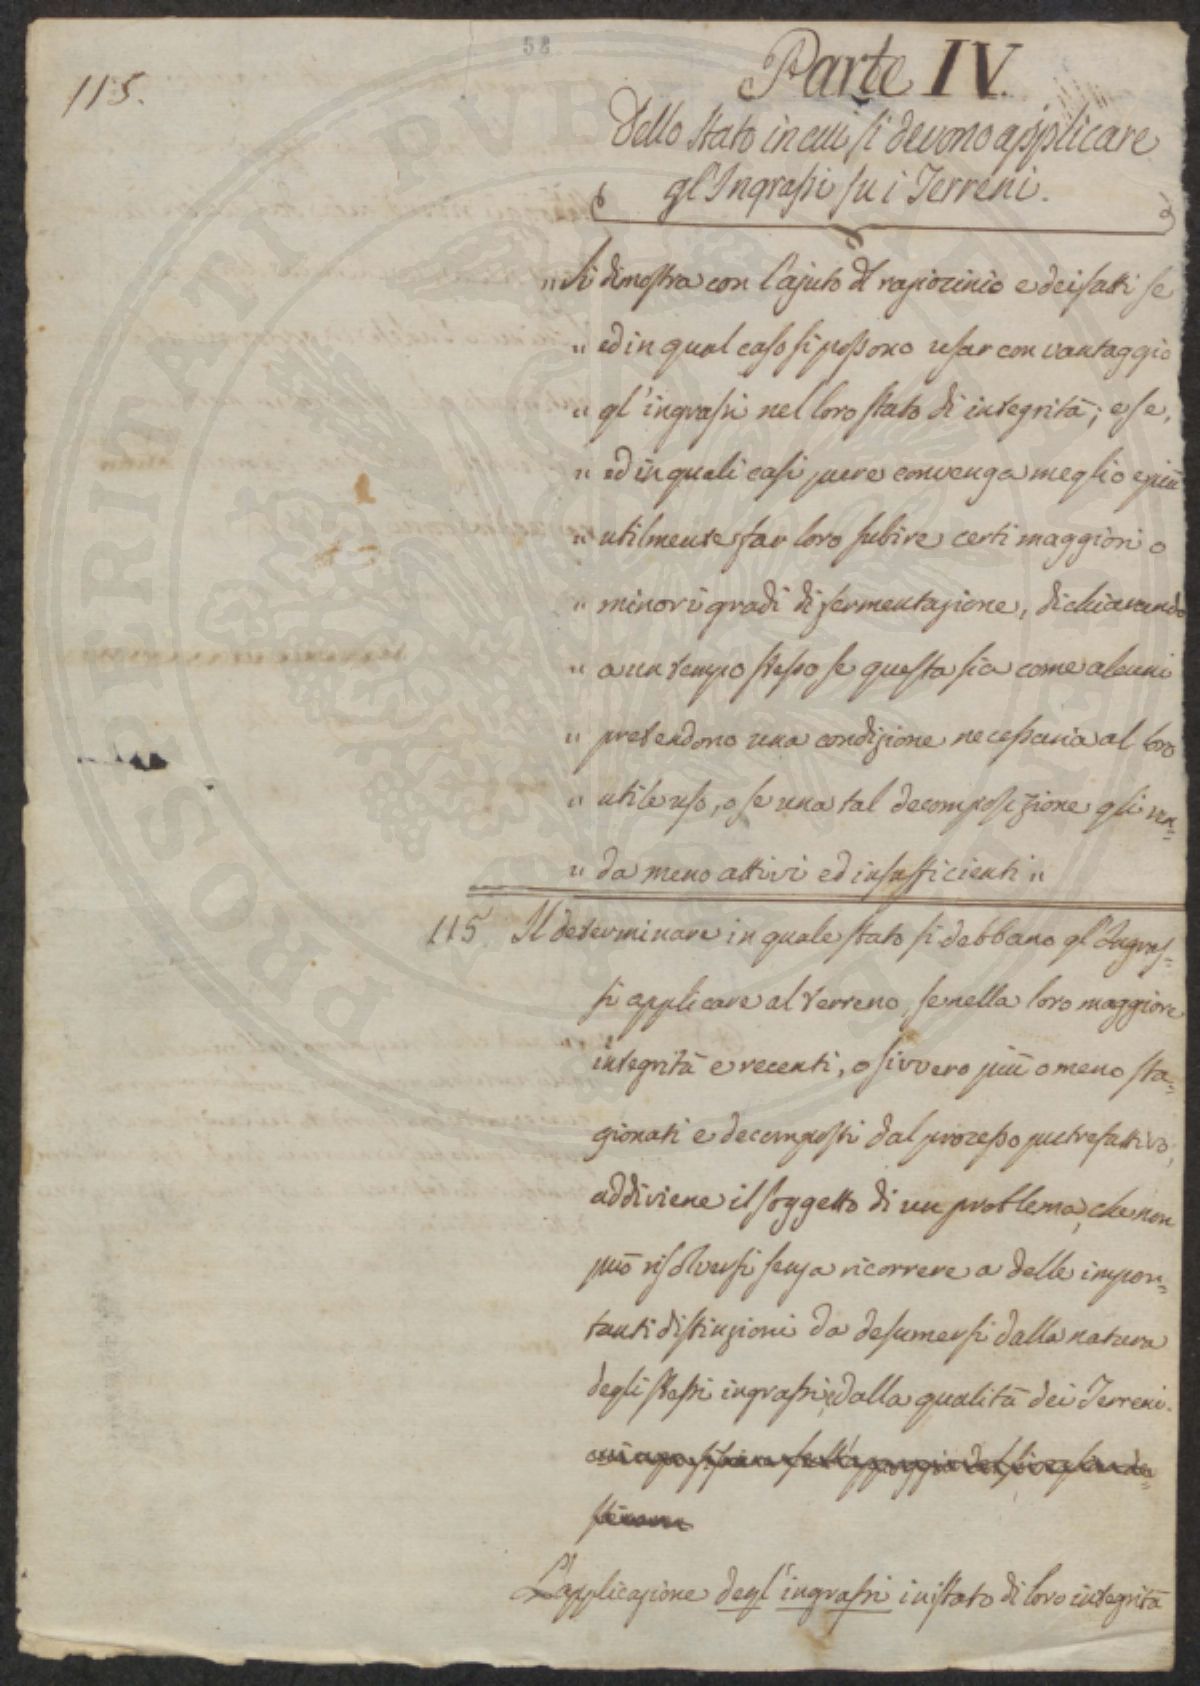 58
115.
Parte IV.
Dello Stato in cui si devono applicare
gl'Ingrassi su i Terreni.
" Si dimostra con l'ajuto del raziozinio e dei fatti se
" ed in qual caso si possono usar con vantaggio
" gl'ingrassi nel loro stato di integrità; e se,
" ed in quali casi pure convenga meglio e più
" utilmente far loro subire certi maggiori o
" minori gradi di fermentazione, dichiarando
" a un tempo stesso se questa sia come alcuni
" pretendono una condizione necessaria al loro
" utile uso, o se una tal decomposizione gli ren=
" da meno attivi ed insufficienti "
115 Il determinare in quale stato si debbano gl'Ingras=
si applicare al terreno, se nella loro maggiore
integrità e recenti, o sivvero più o meno sta=
gionati e decomposti dal processo putrefattivo,
addiviene il soggetto di un problema, che non
può risolversi senza ricorrere a delle impor=
tanti distinzioni da desumersi dalla natura
degli stessi ingrassi, e dalla qualità dei Terreni.
L'applicazione degl'ingrassi in istato di loro integrità
PROSPERITATI PVBLICAE